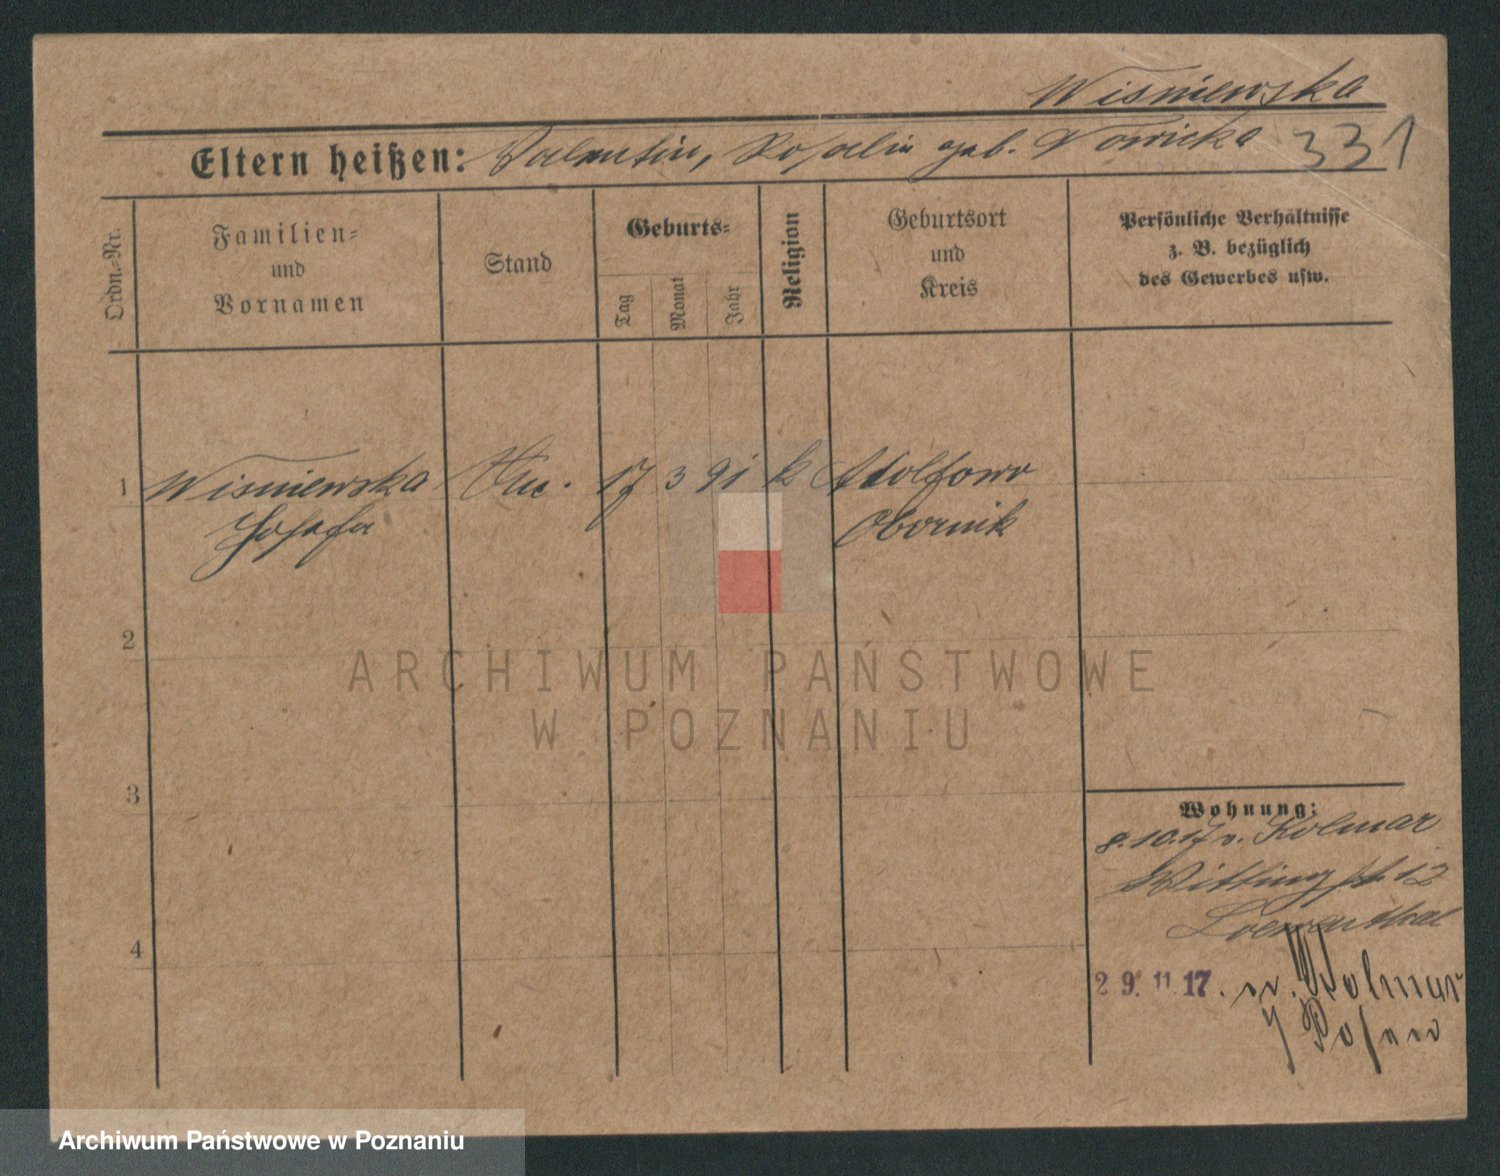 Wisniewska
Eltern heißen: Valentin, Rosalie geb. Nowicka 331
Ordn.=Nr.
Familien=
und
Vornamen
Stand
Geburts=
Tag
Monat
Jahr
Religion
Geburtsort
und
Kreis
Persönliche Verhältnisse
z. B. bezüglich
des Gewerbes usw.
1 Wisniewska 17 3 91 k Adolfowo
Josefa Obornik
2
3
4
ARCHIWUM PAŃSTWOWE
W POZNANIU
Wohnung:
8.10.17 v. Kolmar
12
Loewenthal
29.11.17. n. Kolmar
Posen
Archiwum Państwowe w Poznaniu